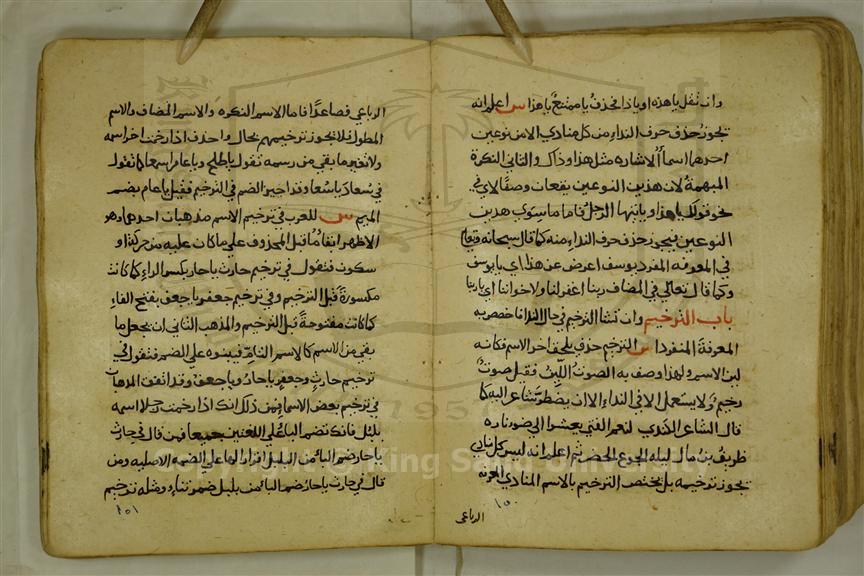 وان تقل يا هذه او يا ذا تحذف يا ممتنع يا هذا س اعلم انه
يجوز حذف حرف النداء من كل منادي الا من نوعين
احدهما اسما الاشاره مثل هذا وذاك والثاني النكرة
المبهمة لان هذين النوعين يقعان وصفا لاي في
نحو قولك يا هذا و يا ايها الرجل فاما ما سوي هذين
النوعين فيجوز حذف حرف النداء منه كما قال سبحانه وتعالي
في المعرفه المفرد يوسف اعرض عن هذا اي يا يوسف
وكما قال تعالي في المضاف ربنا اغفر لنا ولاخواننا اي يا ربنا
باب الترخيم وان تشا الترخيم في حال الندا فاخصص به
المعرفة المنفردا س الترخيم حذف يلحق اخر الاسم فكانه
لين الاسم ولهذا وصف به الصوت اللين فقيل صوت
رخيم ولا يستعمل الا في النداء الا ان يضطر شاعر اليه كما
قال الشاعر لنعم الفتي يعشوا الي ضو ناره
طريف بن مال ليلة الجوع والخصر ثم اعلم انه ليس كل منادي
يجوز ترخيمه بل يختص الترخيم بالاسم المنادي المعرفه
١٥٠
الرباعي
الرباعي فصاعدا فاما الاسم النكره والاسم المضاف والاسم
المطول فلا يجوز ترخيمهم بحال واحذف اذا رخمت اخر اسمه
ولا تغير ما بقي من رسمه تقول يا طلح ويا عام اسمعا كما تقول
في سعاد يا سعا وقد اجيز الضم في الترخيم فقيل يا عام بضم
الميم س للعرب في ترخيم الاسم مذهبان احدهما وهو
الاظهر ابقا ما قبل المحذوف علي ما كان عليه من حركة او
سكون فتقول في ترخيم حارث يا حار بكسر الراء كما كانت
مكسورة قبل الترخيم وفي ترخيم جعفر يا جعف بفتح الفاء
كما كانت مفتوحة قبل الترخيم والمذهب الثاني ان يجعل ما
بقي من الاسم كالاسم التام فيبنوه علي الضم فتقول في
ترخيم حارث وجعفر يا حار ويا جعف وقد اتفقت المذهبان
في ترخيم بعض الاسما فمن ذلك انك اذا رخمت رجلا اسمه
بلبل فانك تضم البا علي اللغتين جميعا فمن قال في حارث
يا حار ضم البا من البلبل اقرارا لها علي الضمه الاصليه ومن
قال في حارث يا حار ضم البا من بلبل ضمة بناء ومثله ترخيم
١٥١